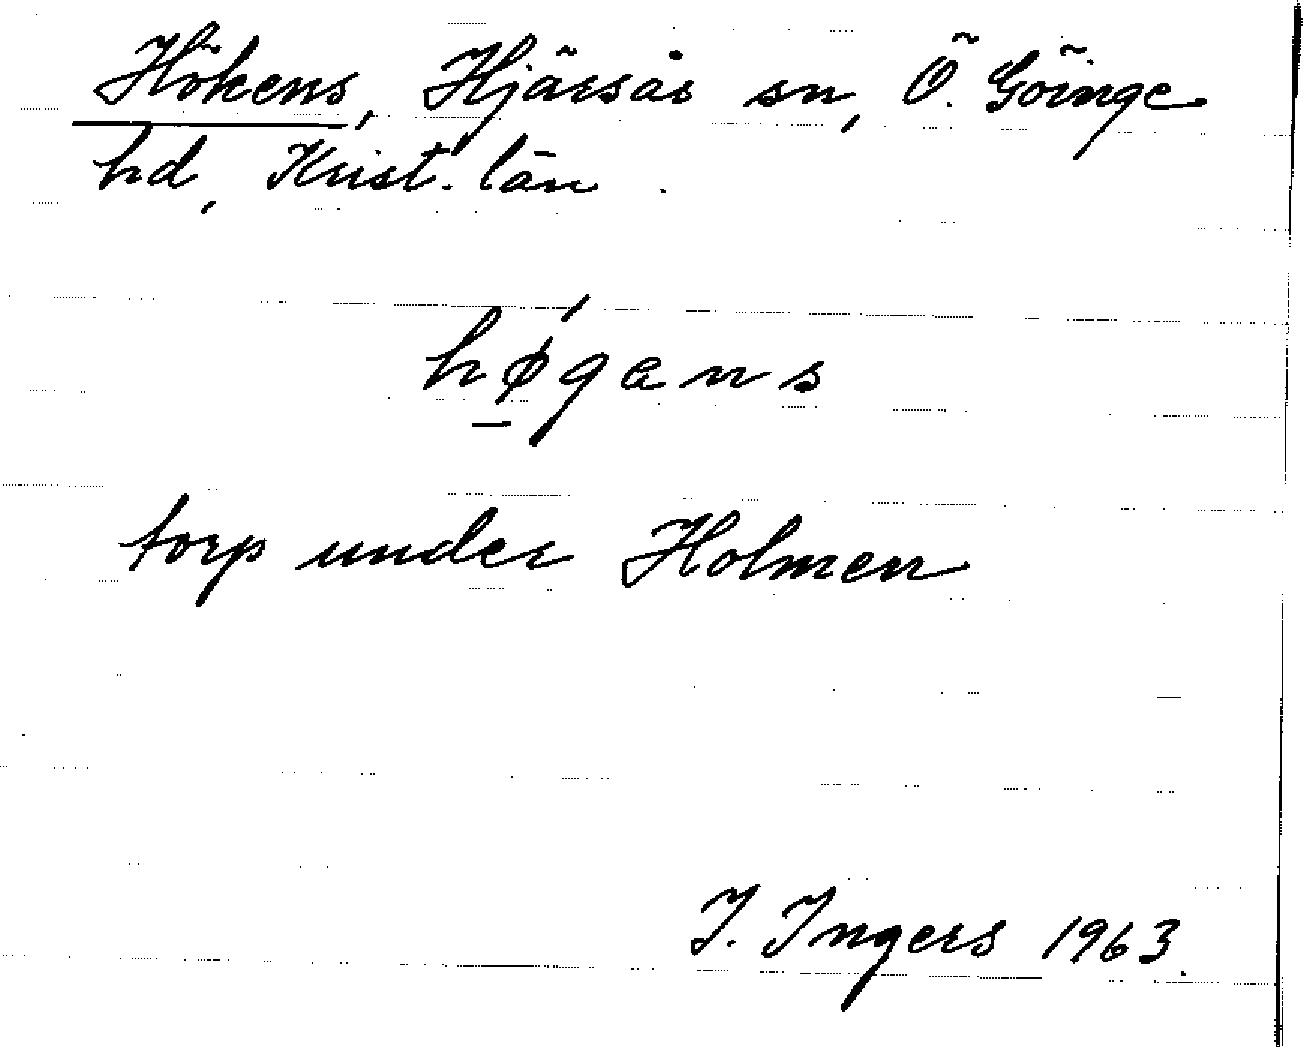 Hökens, Hjärsås sn, Ö. Göinge
hd, Krist. län.
hǿ̲gans
torp under Holmen
I. Ingers 1963.